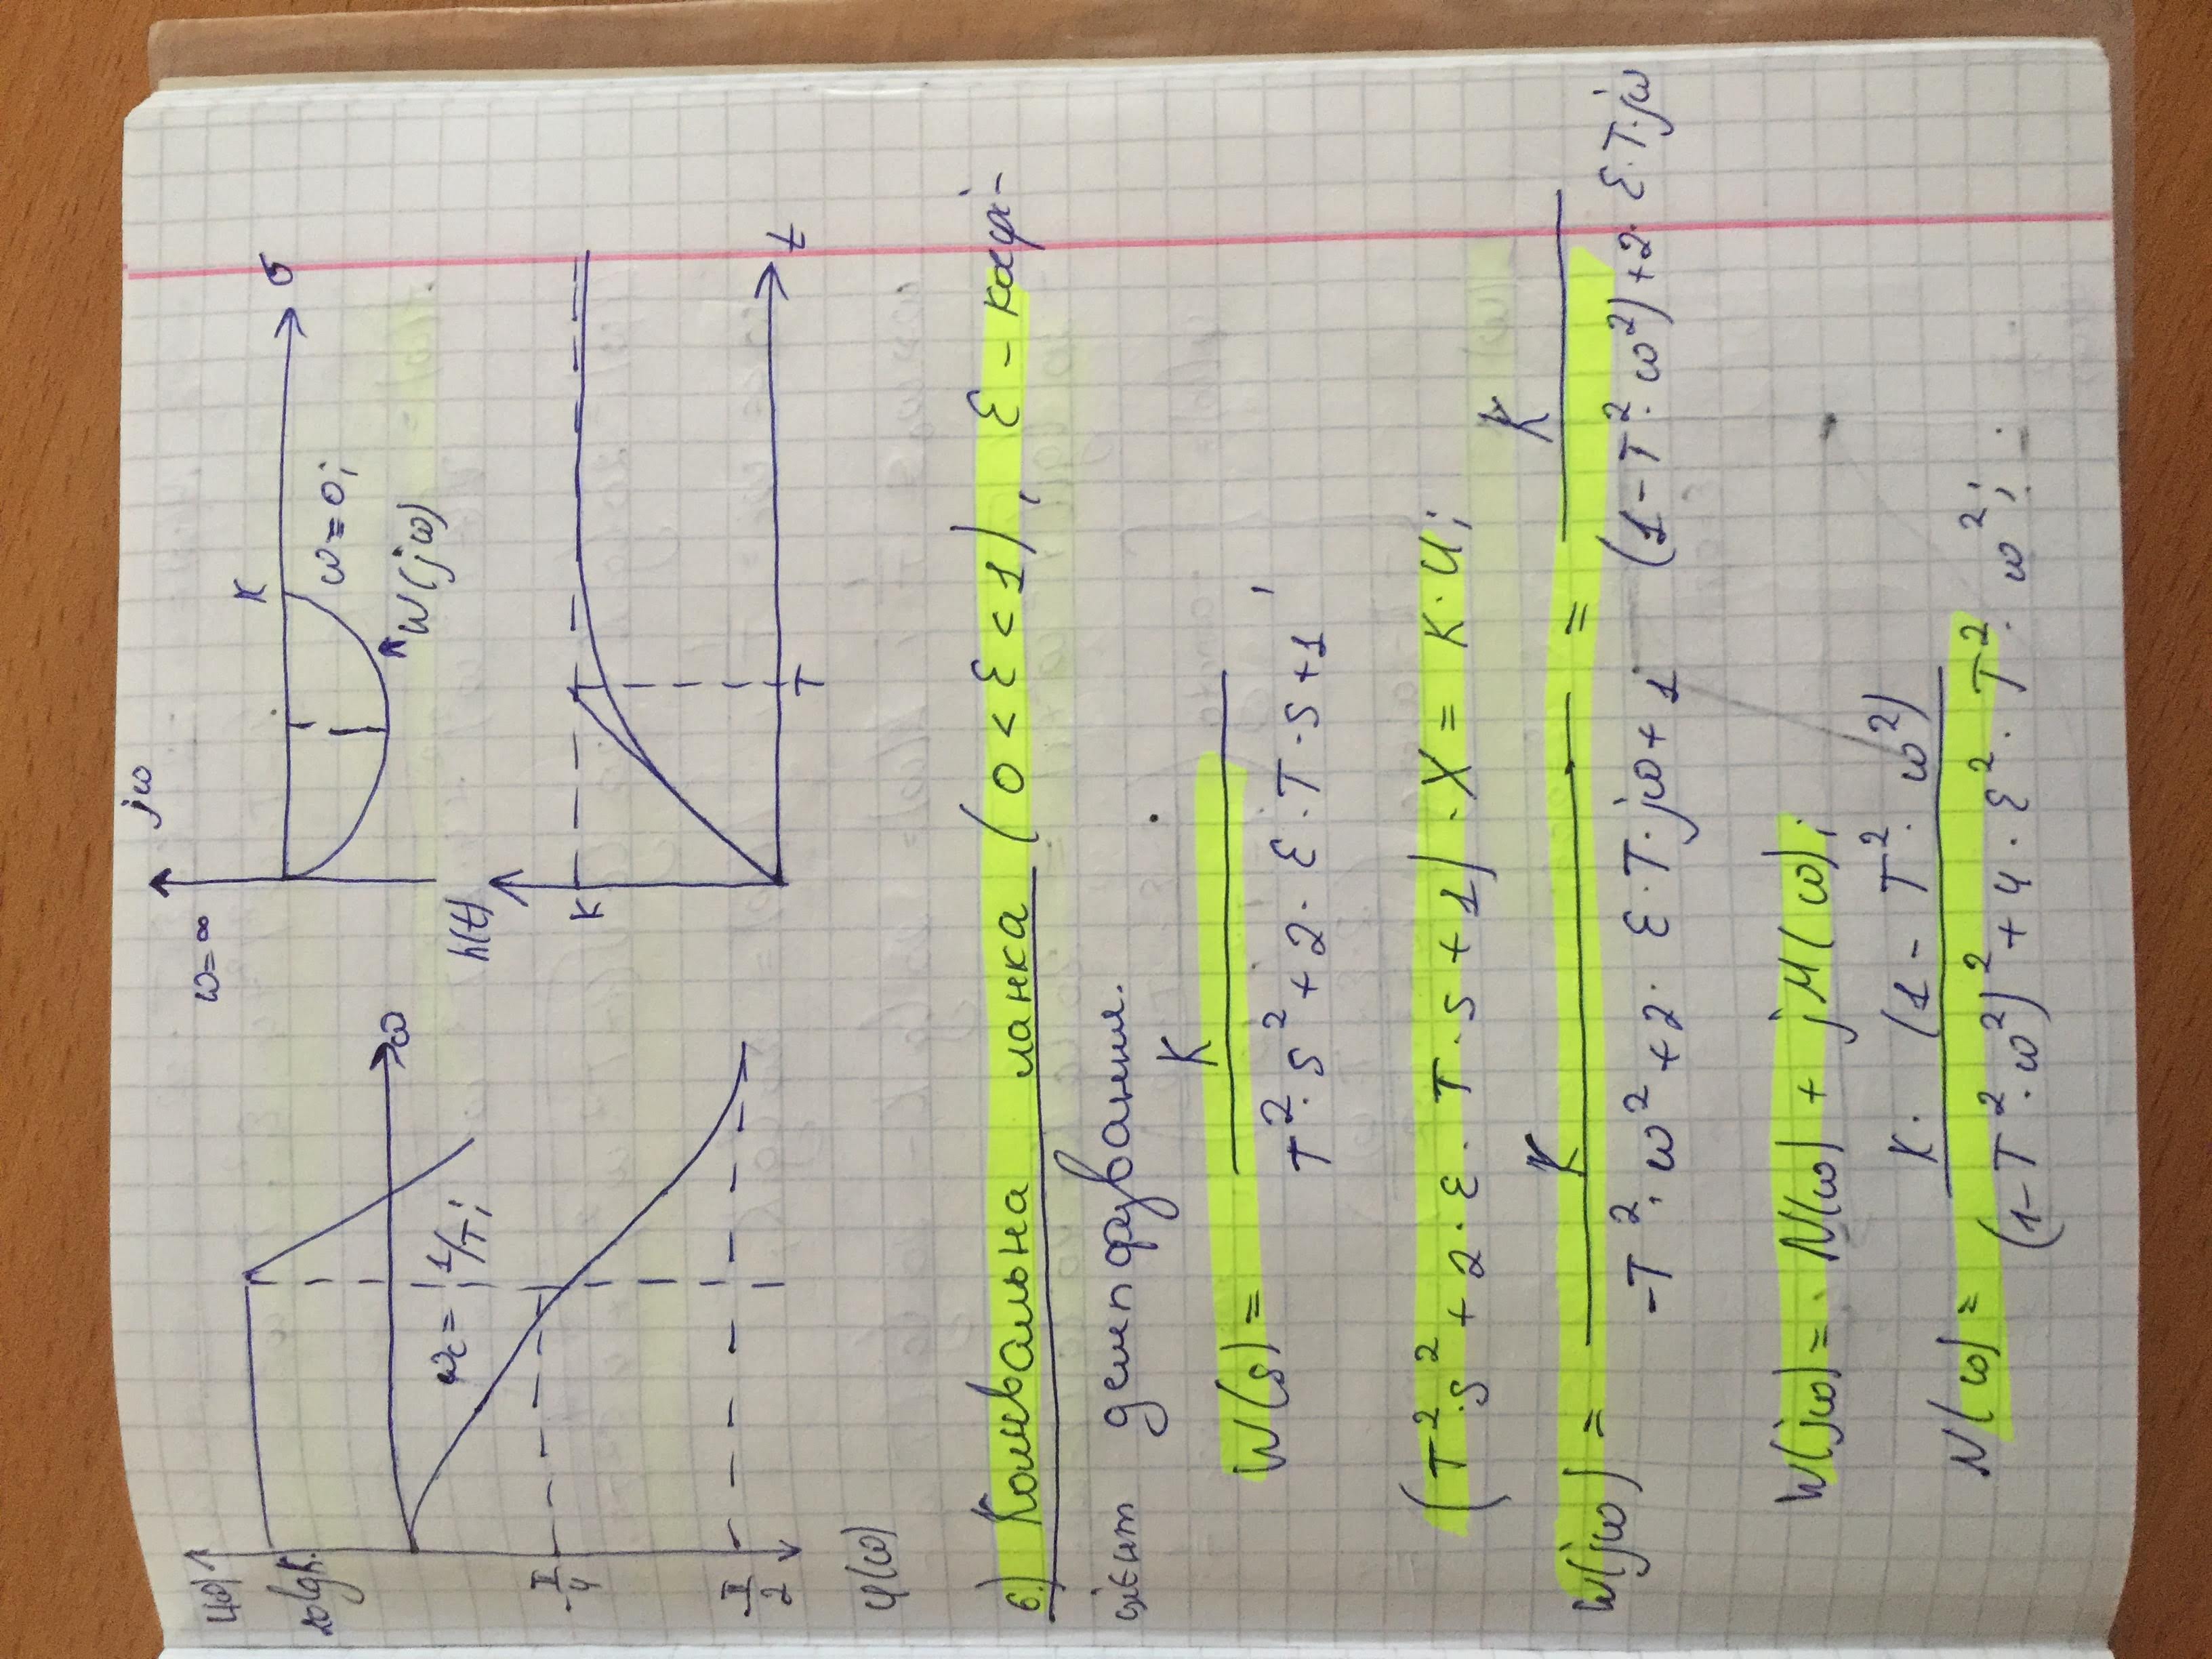 L(ω)
20lgK.
ω
ωc = 1/T;
-π/4
π/2
φ(ω)
jω
ω=∞
K
σ
ω=0;
W(jω)
h(t)
K
T
t
6.) Коливальна ланка (0<ε<1), ε - коефі-
цієнт демпфування.
W(s) = K / (T²·s²+2·ε·T·s+1),
(T²·s²+2·ε·T·s+1)·X = K·U;
W(jω) = K / (-T²·ω²+2·ε·T·jω+1) = K / ((1-T²·ω²)+2·ε·T·jω)
W(jω)= N(ω) + jM(ω);
N(ω) = K·(1-T²·ω²) / ((1-T²·ω²)²+4·ε²·T²·ω²);